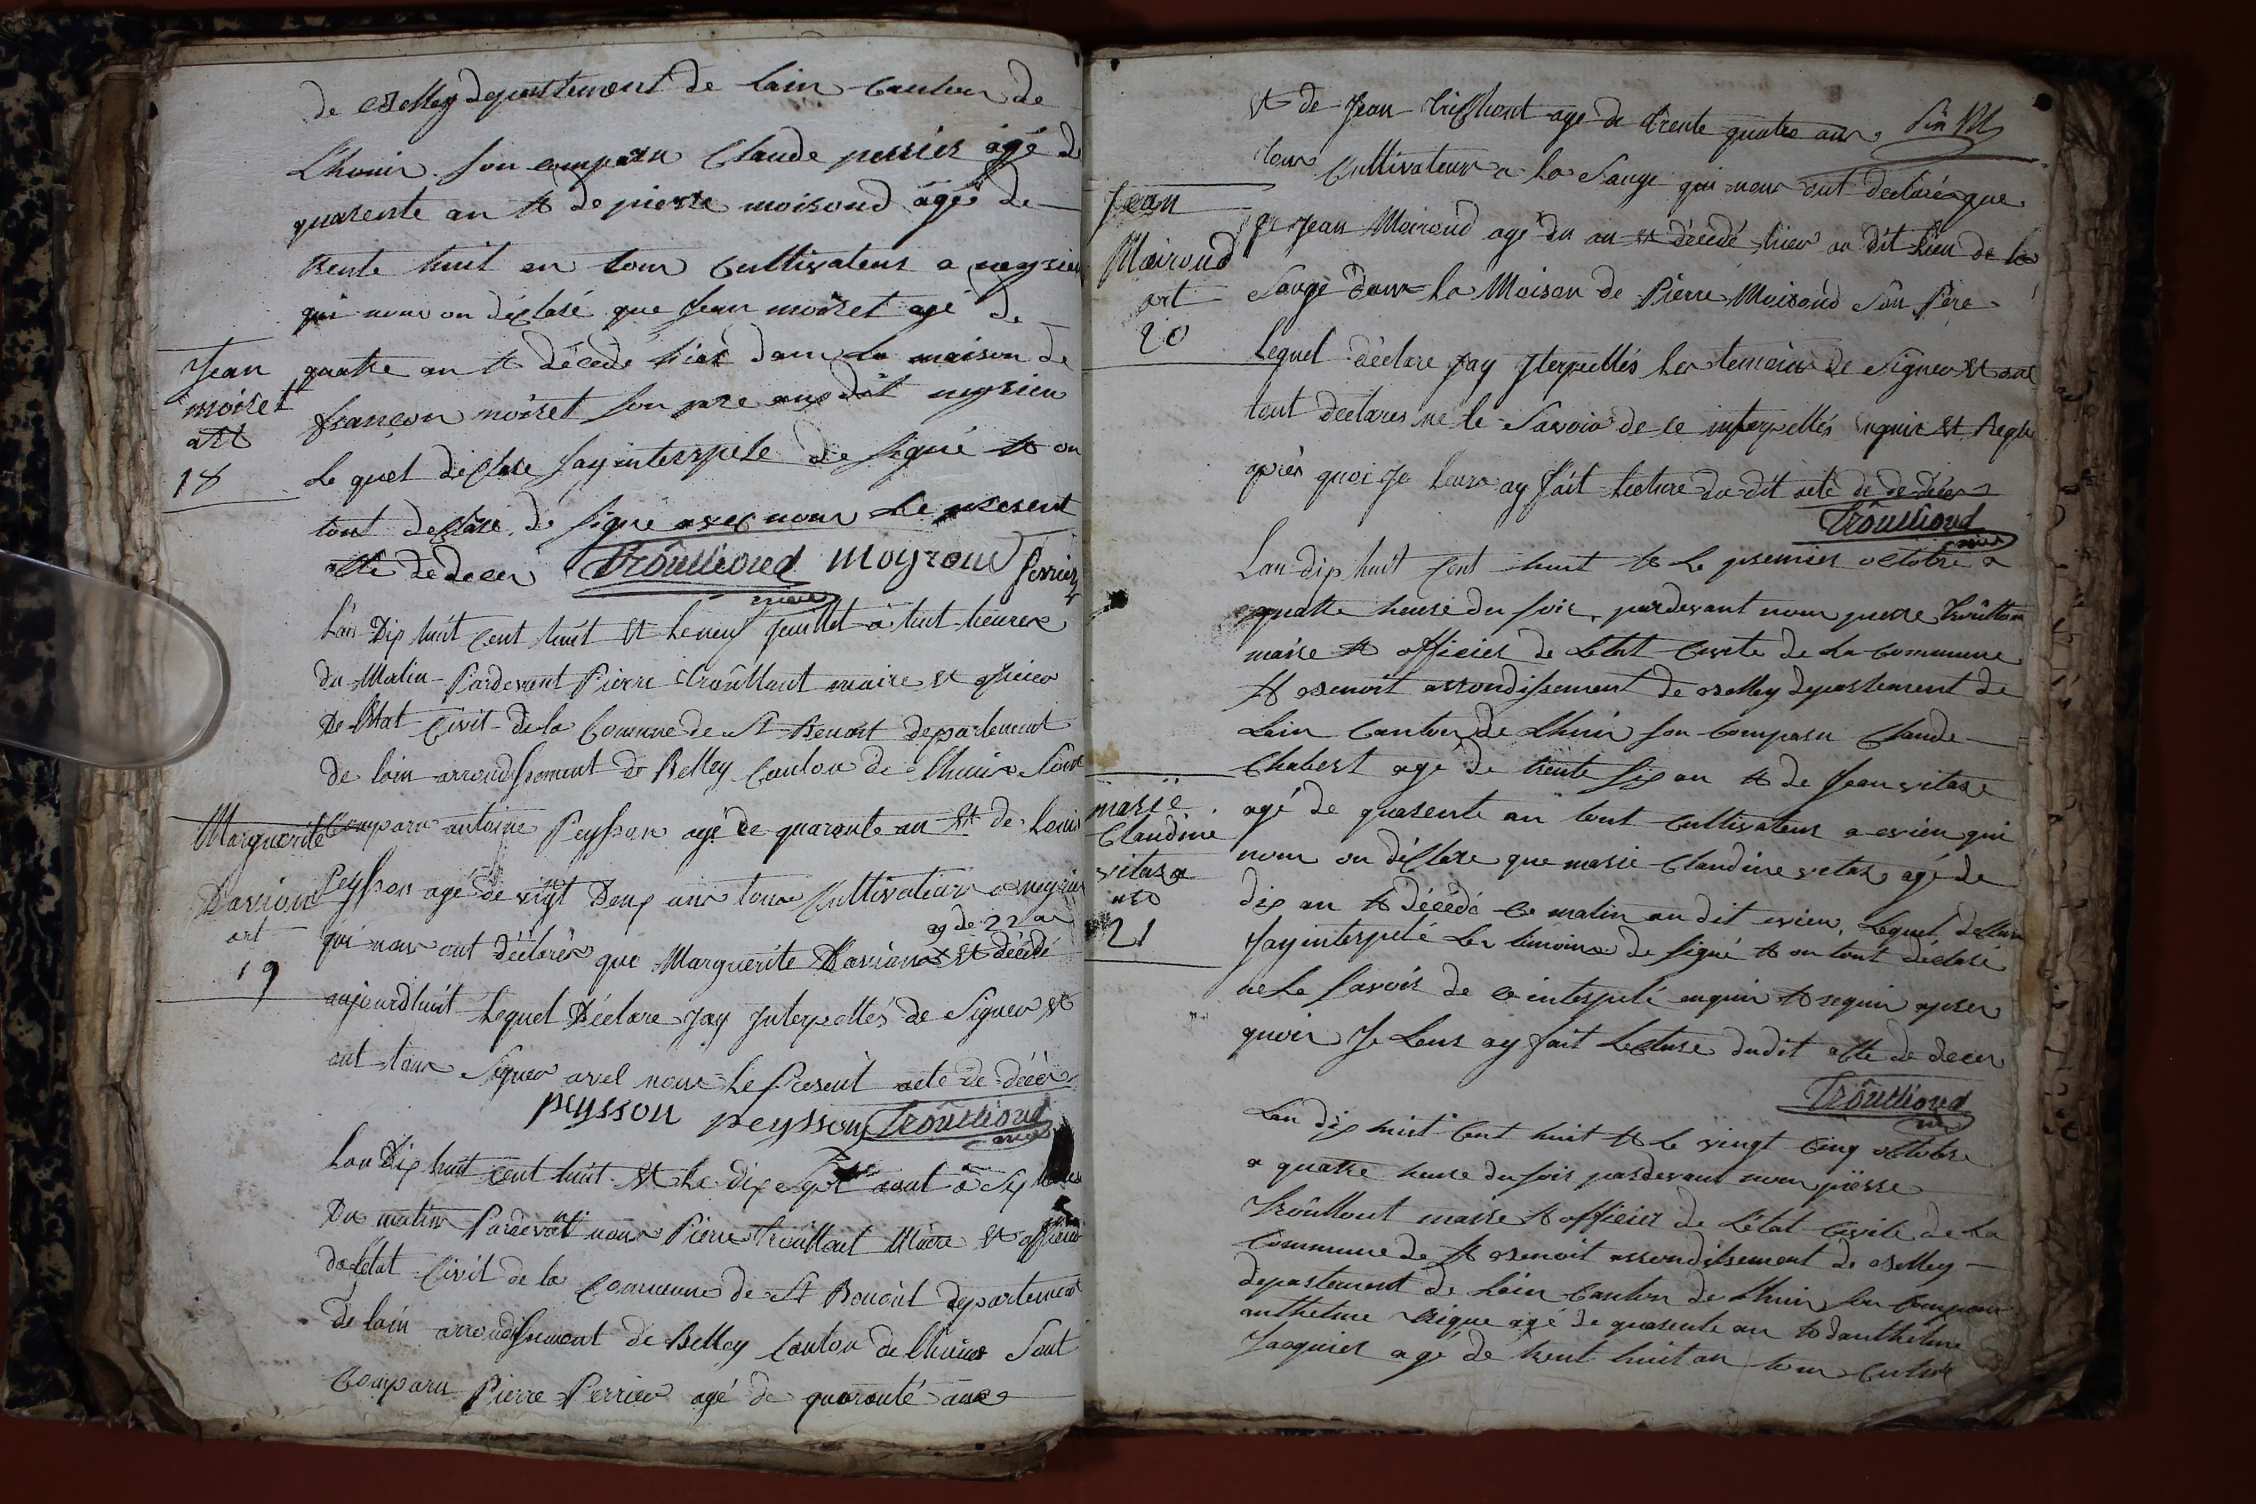 de Belley departtement de lain Canton de
Lhuuir son comparu Claude perrier agé de
quarente an et de pierre moiroud agée de
trente huit an tous Cultivateur a neyrieu
qui nous on déclaré que Jean moiret agé de
Jean
moiret
art
18
quatre an et décedé hier dans la maison de
françon moiret son pere audit neyrieu
Le quel déclare Jay interrpelé de signé et on
tout déclare de signe avec nous Le present
atte de deces Trôullioud moyroud perrier
maire
Lan Dix huit Cent huit et le neuf Jeuillet à huit heures
du Matin Pardevant Pierre Trôulliout maire et officier
De l'Etat Civil de la Commune de St Benoit departement
de lain arrondissement de Belley Canton de Lhuis Sont
Marguerite
Davion
art
19
Comparu antoine Peysson agé de quarante an et de Louis
Peysson agé de vingt Deux ans tous Cultivateurs a neyrieu
ag de 22 an
qui nous ont déclarés que Marguerite Davion et décédé
aujourdhuit Lequel Déclare Jay Interpellés de Signer et
ont tous Signer avel nous Le Present acte de décès
peysson peysson Trôullioud
maire
Lan Dix huit cent huit et le dix sept aout à Six heures
Du matin Pardevant nous Pierre Trôulliout Maire et officier
de l'etat Civil de la Commune de St Benoit departement
de lain arrondissement de Belley Canton de Lhuis Sont
Comparu Pierre Perrier agé de quaranté ans
et de Jean age de trente quatre ans
tous Cultivateurs a la Sauge qui nous ont declarés que
Jean
Moiroud
art
20
Jean Moiroud agé du an et décedé hier au dit lieu de la
Sauge dans la Maison de Pierre Moiroud Son Pere
Lequel déclare Jay Iterpellés les temoins de Signer et ont
tout declares ne le Savoir de ce interpellés enquir et Requi
après quoi Je leurs ay fait lecture du dit acte de de déces
Trôullioud
maire
Lan dix huit Cent huit et le premier octobre a
quatre heure du soir pardevant nous pierre Trôulliou
maire et officier de Letat Civile de La Commune
St Benoit arrondissement de Belley departement de
Lain Canton de Lhuir son Comparu Claude
Chabert agé de trente six an et de Jean vitaze
marie
Claudine
vitaza
art
21
agé de quarente an tout Cultivateur a evieu qui
nous on déclare que marie Claudine vitaz agé de
dix an et décédé ce matin au dit evieu, Lequel
Jay interpelé Les timoins de signé et on tout déclaré
ne Le savoir de ce interpelé enquir et requir apres
quoir Je Leur ay fait Lecture dudit atte de deces
Trôullioud
maire
Lan dix huit Cent huit et Le vingt Cinq octobre
a quatre heure du soir pardevant nous pierre
Trôulliout maire et officier de Létat Civile de La
Commune de St Benoit arrondissement de Belley
departement de Lain Canton de Lhuir son Comparu
anthelme agé de quarente an et danthelme
Jacquier agé de trent huit an tous Cultiv